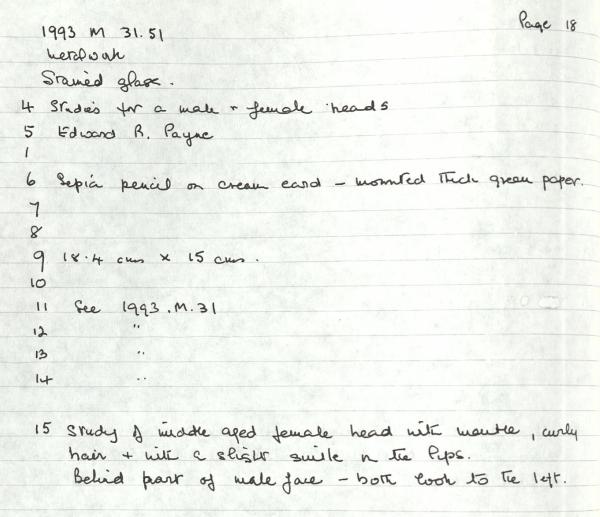 Page 18
1993 M 31.51
Stained glass.
4 Studies for a male + female heads
5 Edward R. Payne
1
6 Sepia pencil on cream card – mounted thick green paper.
7
8
9 18.4 cms × 15 cms.
10
11 See 1993.M.31
12 "
13 "
14 "
15 Study of middle aged female head with mantle, curly
hair + with a slight smile on the lips.
Behind part of male face – both look to the left.